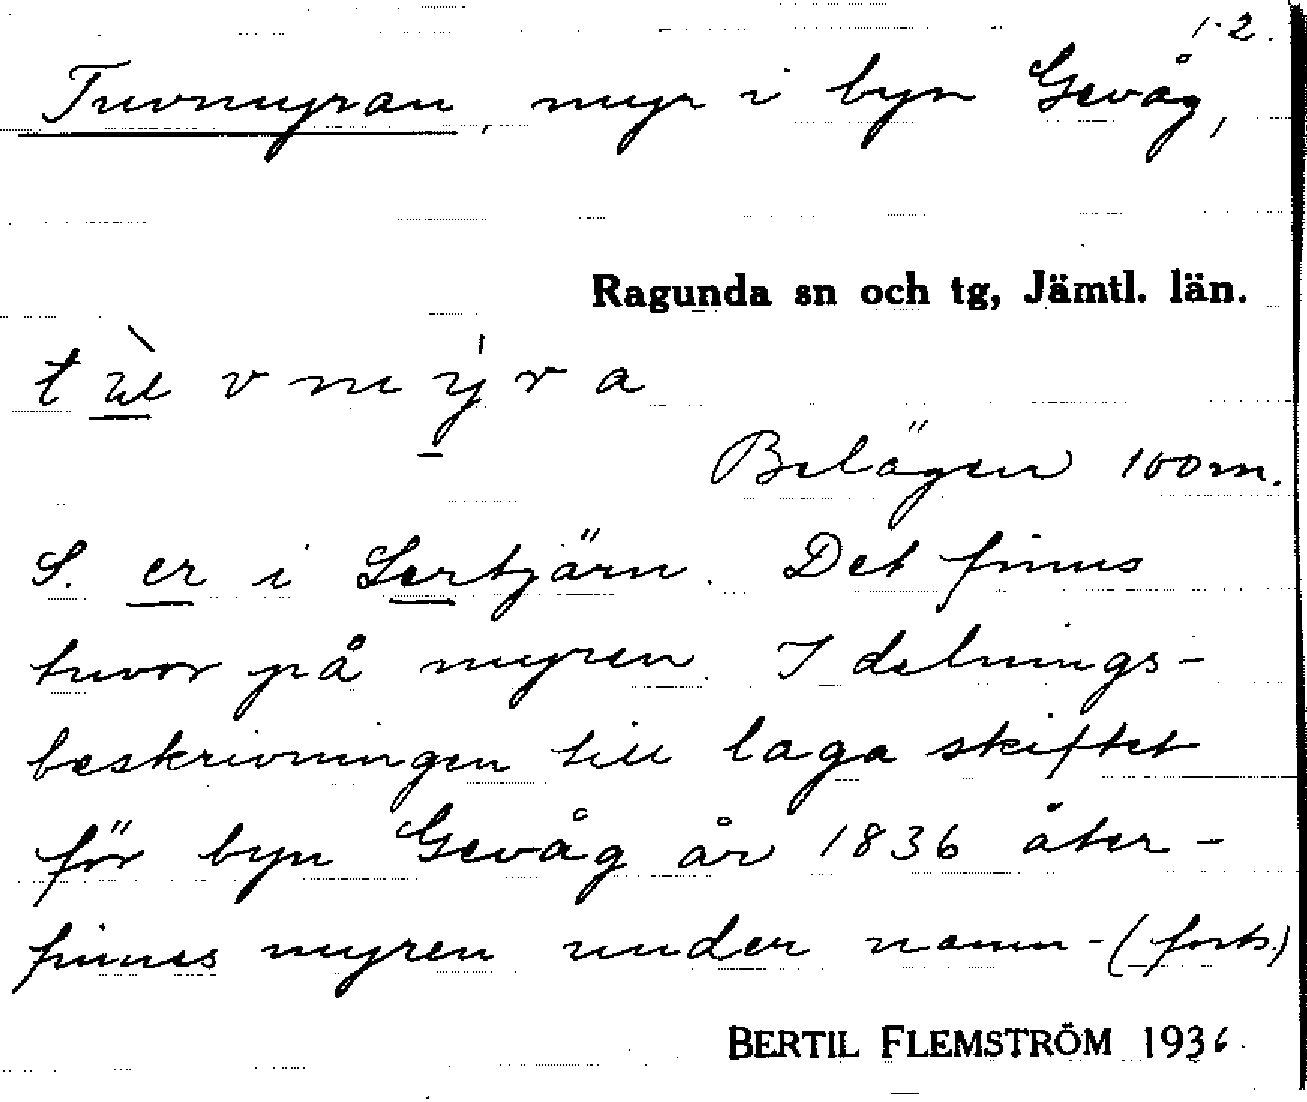 1-2.
Tuvmyran, myr i byn Gevåg,
Ragunda sn och tg, Jämtl. län.
Belägen 100 m.
S. er i Sertjärn. Det finns
tuvor på myren. I delnings-
beskrivningen till laga skiftet
för byn Gevåg år 1836 åter-
finnes myren under namn- (forts.)
BERTIL FLEMSTRÖM 1936